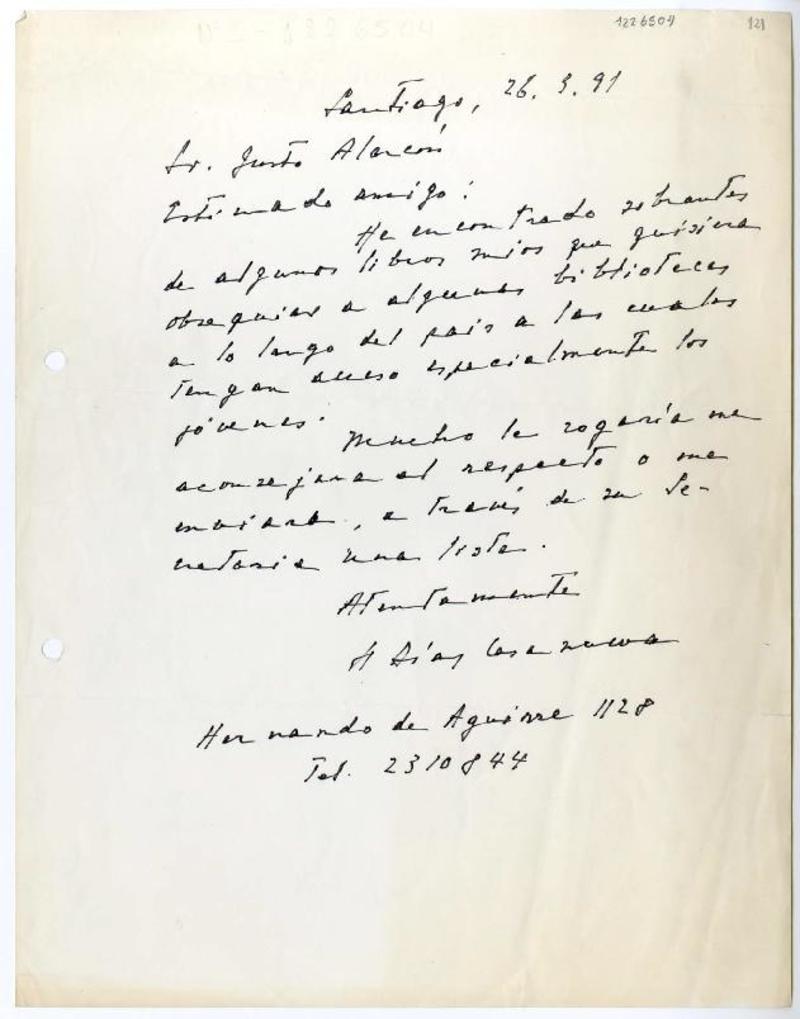 1226504 121
Santiago, 26. 3. 91
Sr. Justo Alarcón
Estimado amigo:
He encontrado sobrantes
de algunos libros mios que quisiera
obsequiar a algunas bibliotecas
a lo largo del país a las cuales
tengan acceso especialmente los
jóvenes.
Mucho le rogaría me
aconsejara al respecto o me
enviara, a través de su Se-
cretaria una lista.
Atentamente
H Díaz Casanueva
Hernando de Aguirre 1128
Tel. 2310844